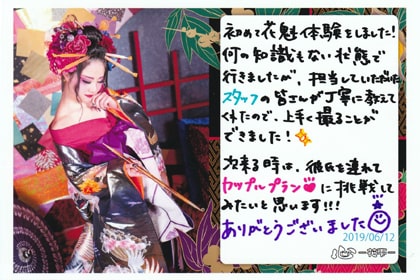 初めて花魁体験をしました!
何の知識もない状態で
行きましたが、担当していただいた
スタッフの皆さんが丁寧に教えて
くれたので、上手く撮ることが
できました!
次来る時は、彼氏を連れて
カップルプラン♥に挑戦して
みたいと思います!!!
ありがとうございました
2019/06/12